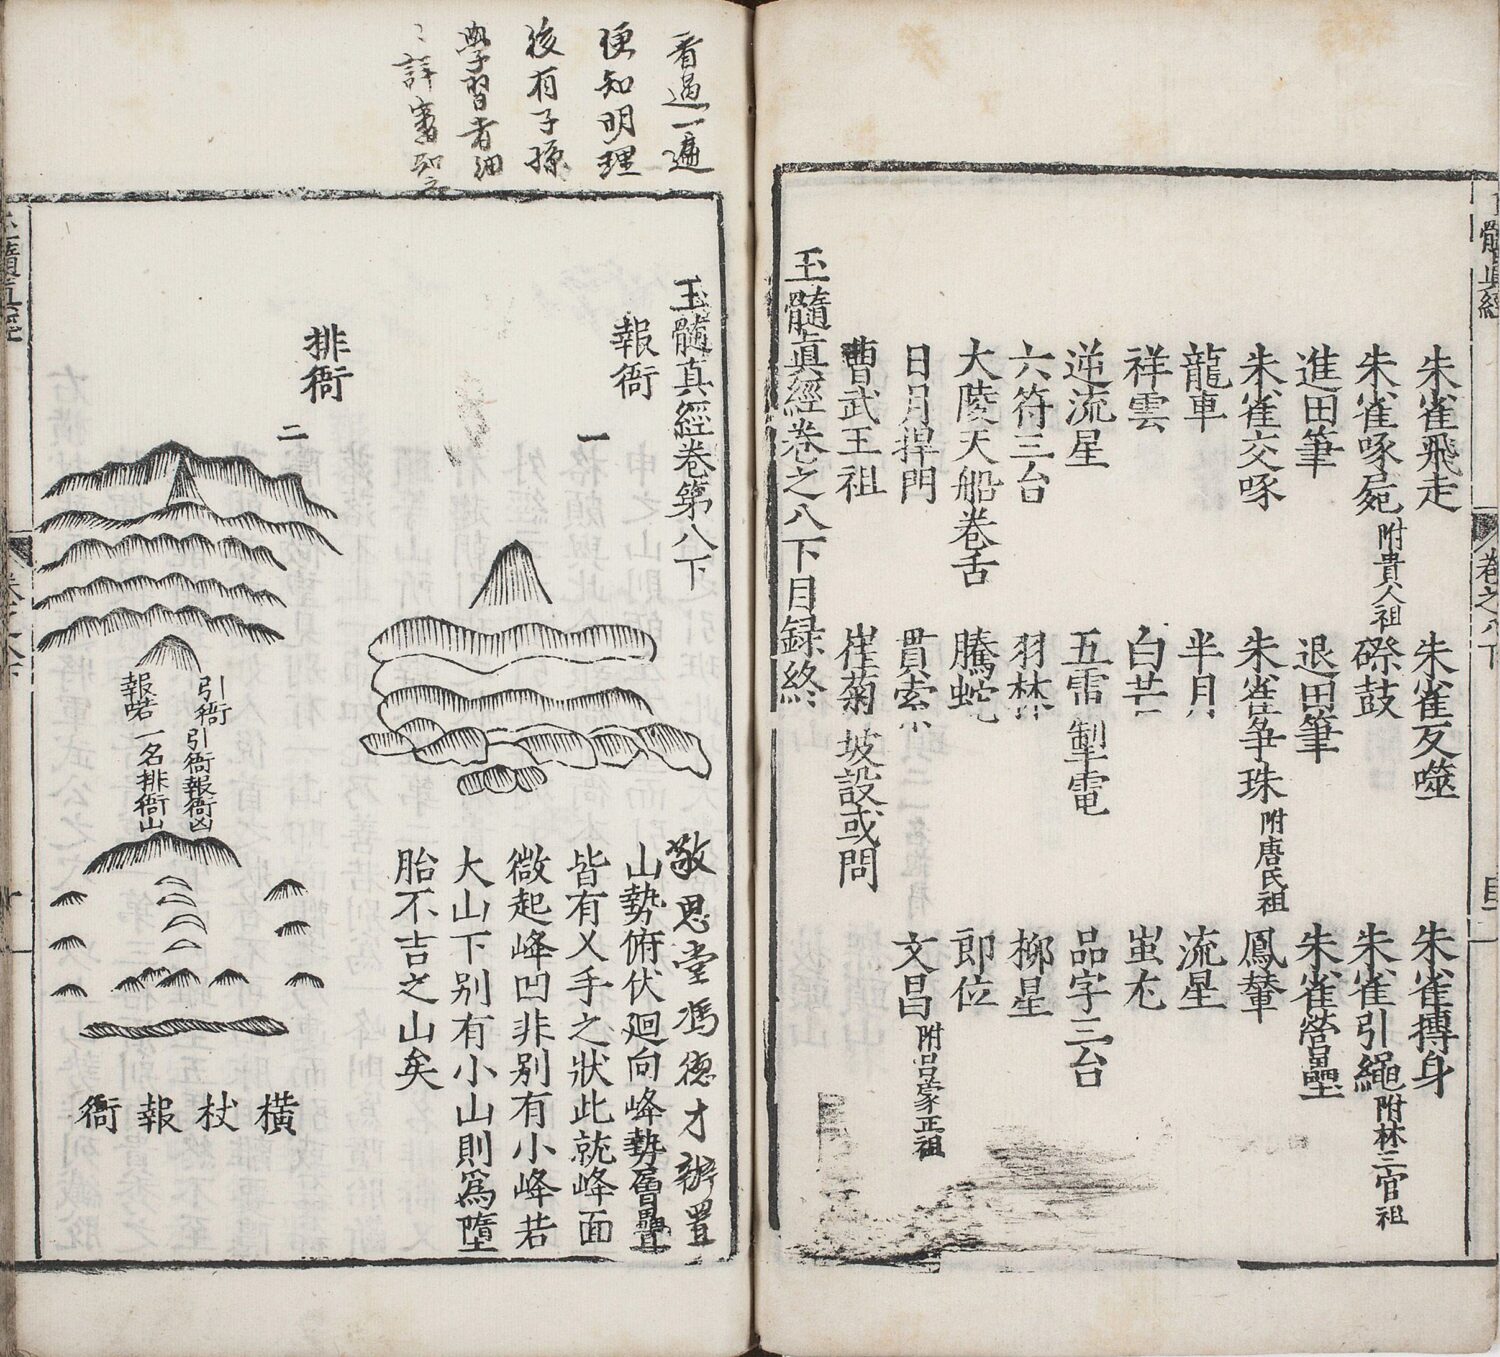 朱雀飛走　朱雀反噬　朱雀搏身
朱雀啄屍附貴人祖　磔鼓　朱雀引繩附林三官祖
進田筆　退田筆　朱雀營壘
朱雀交啄　朱雀爭珠附唐氏祖　鳳輦
龍車　半月　流星
祥雲　白芒　蚩尤
逆流星　五雷掣電　品字三台
六符三台　羽林　柳星
大陵天船卷舌　騰蛇　即位
日月捍門　貫索　文昌附呂蒙正祖
曹武王祖　崔菊坡設或問
玉髓真經卷之八下目録終
髓真經
卷之八下
目
看過一遍
便知明理
後有子孫
學習者細
詳審知
玉髓真經卷第八下
敬思堂馮德才辦置
報衙
一
山勢俯伏廻向峰勢層疊
皆有乂手之狀此就峰面
微起峰凹非别有小峰若
大山下别有小山則爲墮
胎不吉之山矣
排衙
二
引衙
引衙報衙凶
報喏
一名排衙山
橫杖報衙
髓真經
卷之八下